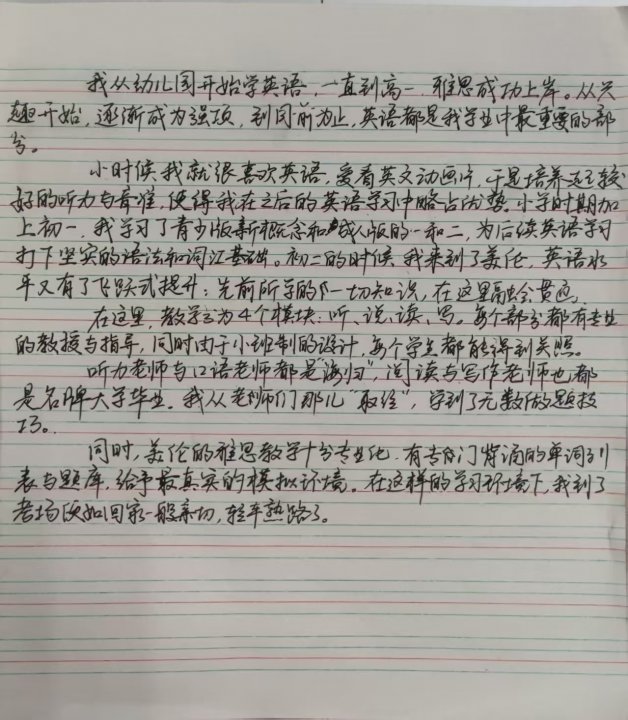 我从幼儿园开始学英语，一直到高一，雅思成功上岸。从兴
趣开始，逐渐成为强项，到目前为止，英语都是我学业中最重要的部
分。
小时候我就很喜欢英语，爱看英文动画片，于是培养了较
好的听力与音准，使得我在之后的英语学习中略占优势。小学时期加
上初一，我学习了青少版新概念和成人版的一和二，为后续英语学习
打下坚实的语法和词汇基础。初二的时候，我来到了美伦，英语水
平又有了飞跃式提升；先前所学的一切知识，在这里融会贯通。
在这里，教学分为4个模块：听、说、读、写。每个部分都有专业
的教授与指导，同时由于小班制的设计，每个学生都能得到关照。
听力老师与口语老师都是“海归”，阅读与写作老师也都
是名牌大学毕业。我从老师们那儿“取经”，学到了无数做题技
巧。
同时，美伦的雅思教学十分专业化，有专门背诵的单词列
表与题库，给予最真实的模拟环境。在这样的学习环境下，我到了
考场仿如回家一般亲切，轻车熟路了。